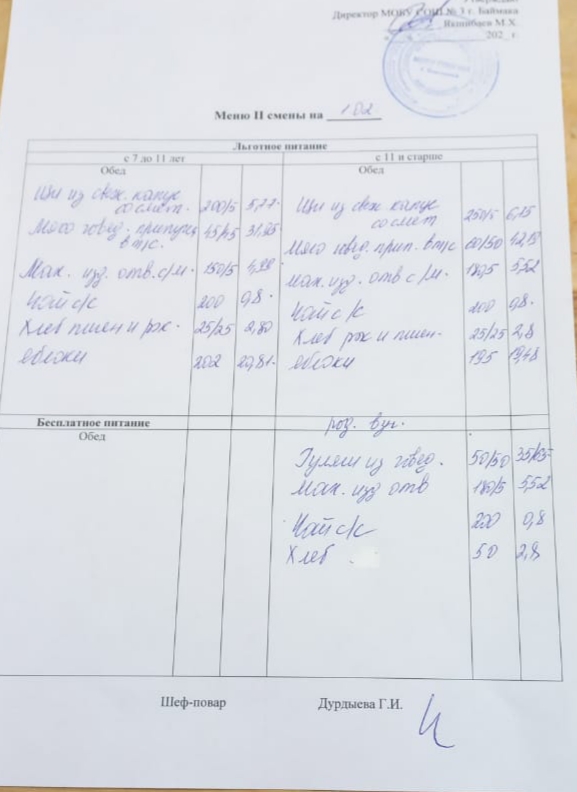 Директор МОБУ СОШ № 3 г. Баймака
Якшибаев М.Х.
202_ г.
Меню II смены на 1 02
Льготное питание
с 7 до 11 лет
с 11 и старше
Обед
Обед
Щи из свеж. капус
со смет. 200/5 5,77
Мясо говяд. припущ
в т/с. 45/45 31,25
Мак. изд. отв. с/м. 150/5
Чай с/с 200 0,8
Хлеб пшен и рж. 25/25 2,80
яблоки 202
Щи из свеж. капус
со смет 250/5 6,15
Мясо говяд. прип. в т/с 60/50
Мак. изд. отв с/м. 180/5 5,52
Чай с/с 200 0,8
Хлеб рж и пшен. 25/25 2,8
яблоки 195 19,48
Бесплатное питание
Обед
род.
Гуляш из говяд. 50/50
Мак. изд отв 180/5 5,52
Чай с/с 200 0,8
Хлеб 50 2,8
Шеф-повар Дурдыева Г.И.